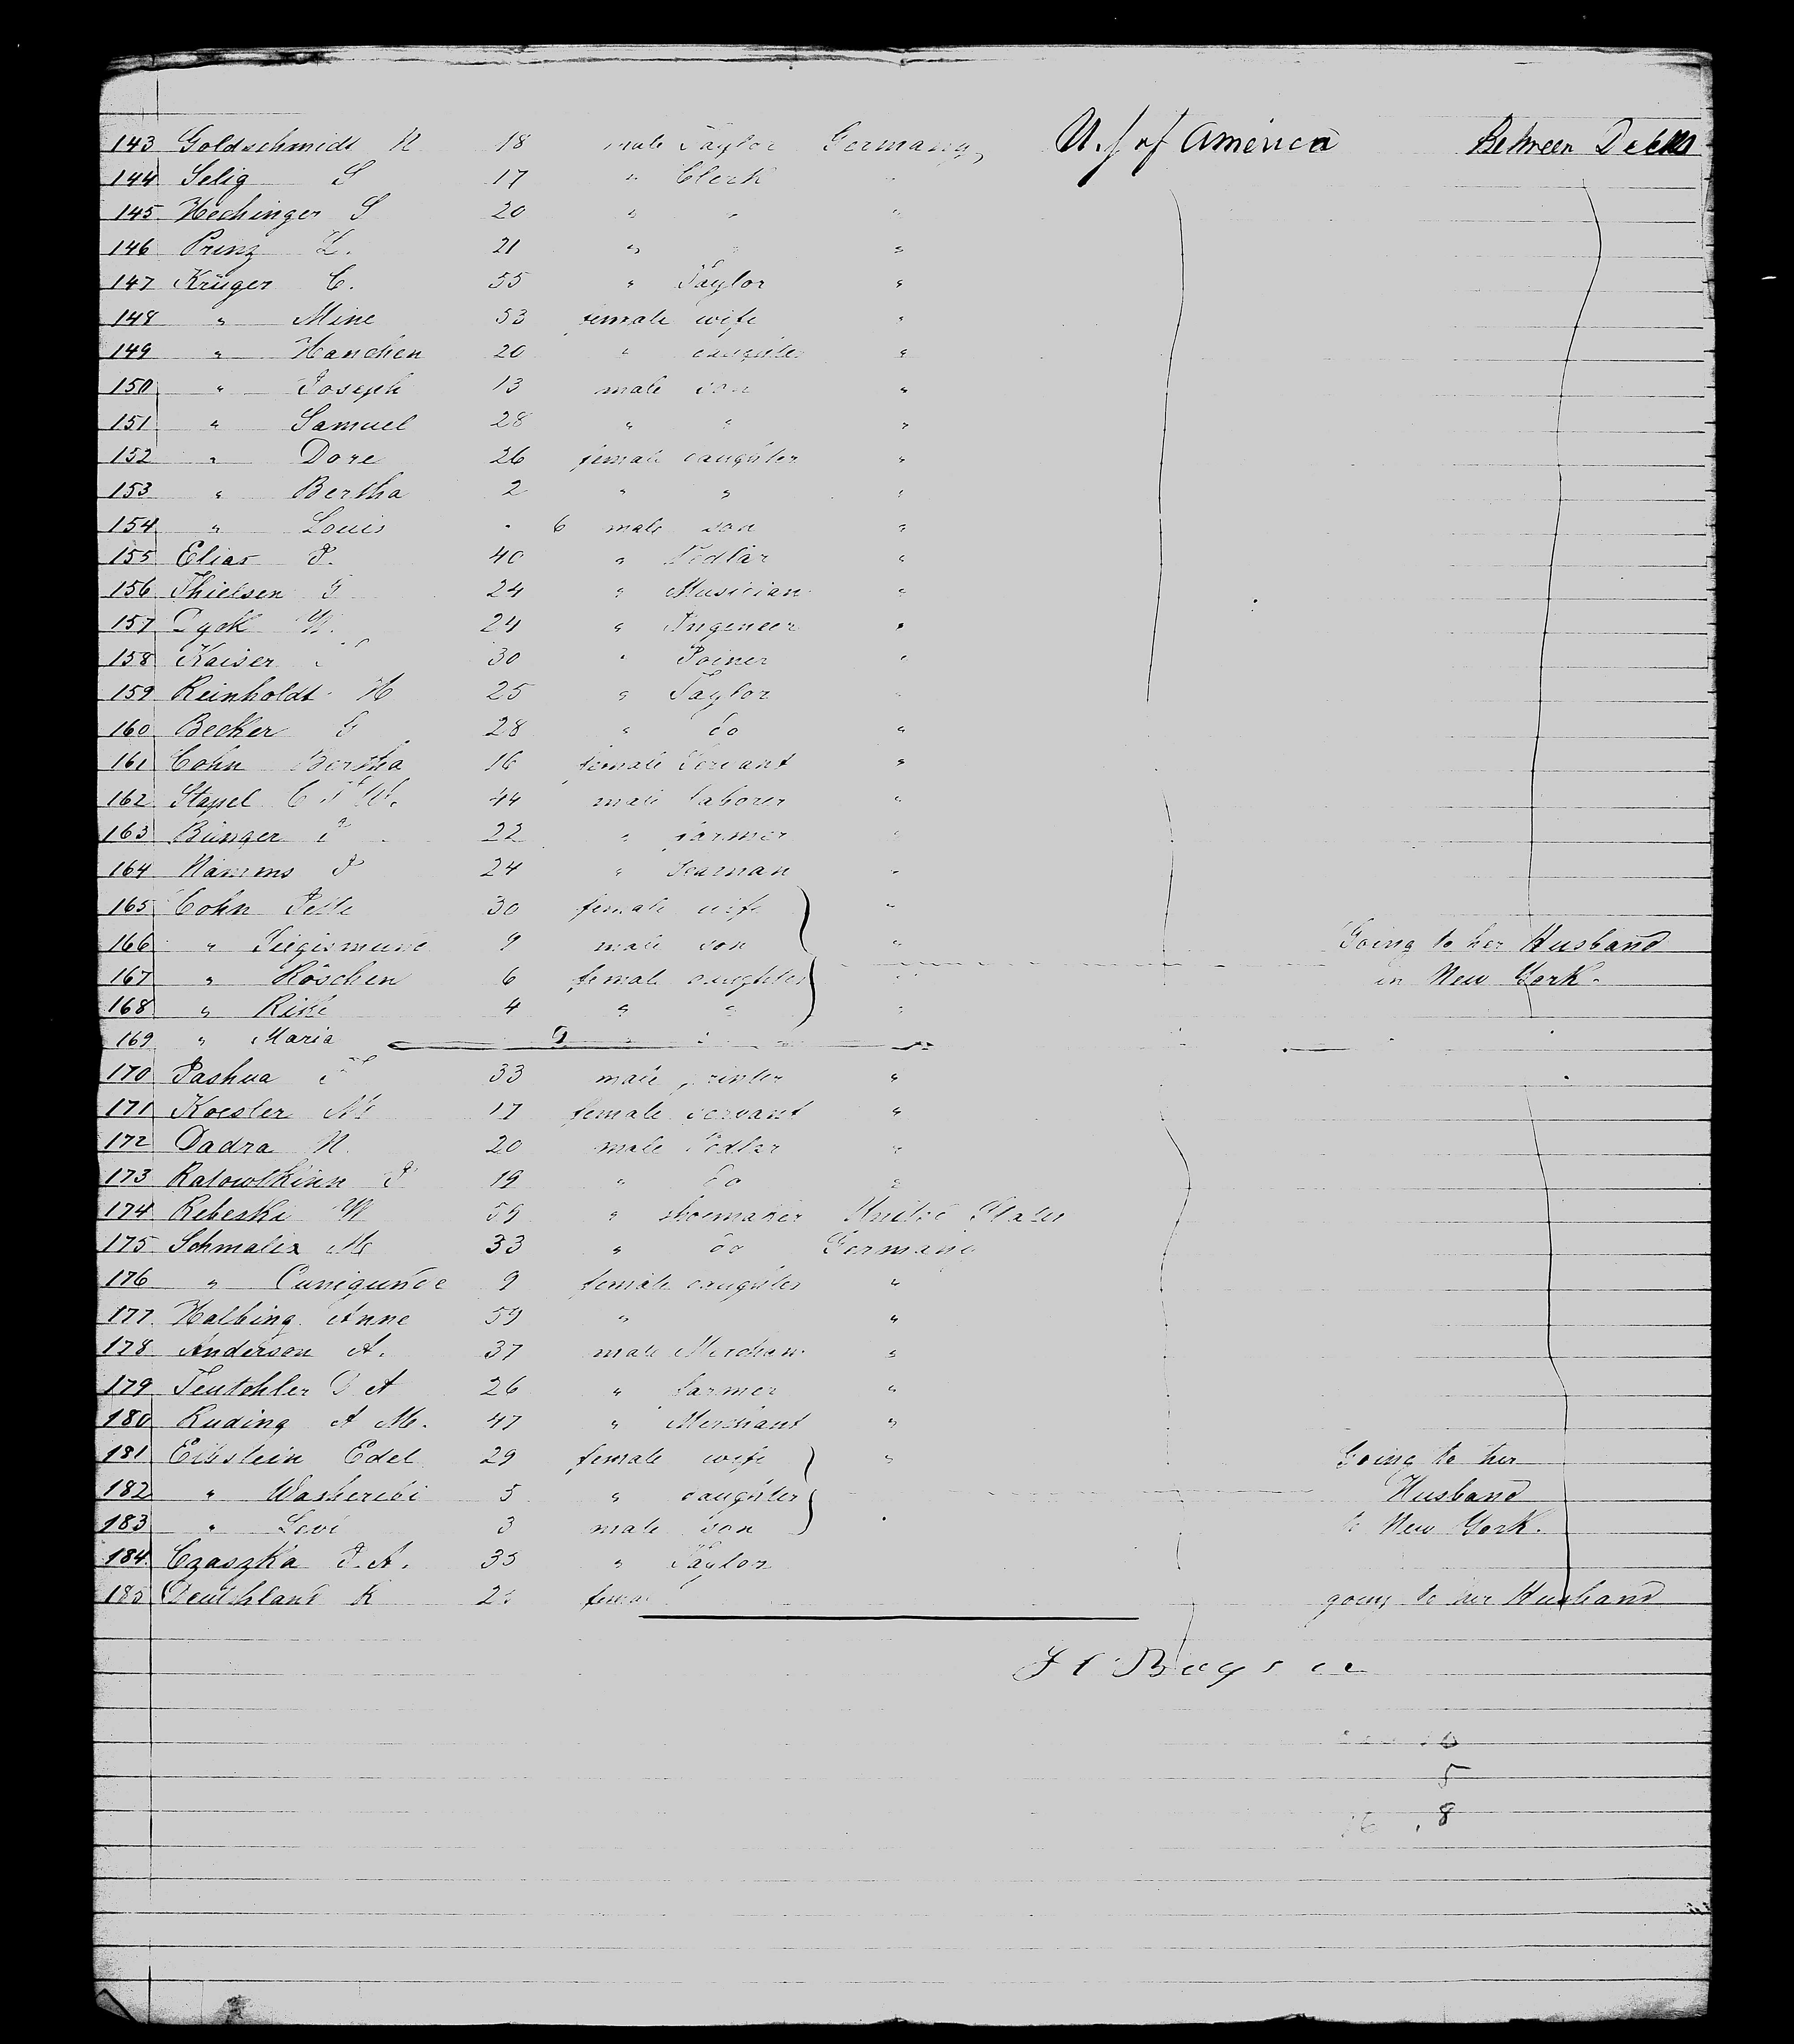 143 Goldschmidt N 18 male Taylor Germany U. S of America Between Decks
144 Selig S 17 " Clerk "
145 Hechinger S 20 " " "
146 Prinz L. 21 " " "
147 Krüger C. 55 " Taylor "
148 " Mine 53 female wife "
149 " Hanchen 20 " daughter "
150 " Joseph 13 male son "
151 " Samuel 28 " " "
152 " Dore 26 female daughter "
153 " Bertha 2 " " "
154 " Louis " 6 male son "
155 Elias J. 40 " Pedlar "
156 Thielsen 24 " Musician "
157 Dyck W. 24 " Ingeneer "
158 Kaiser 30 " Joiner "
159 Reinholdt H 25 " Taylor "
160 Becker G 28 " do "
161 Cohn Bertha 16 female Servant "
162 Stapel C 44 male laborer "
163 Bünger 22 " farmer "
164 Hamms J 24 " Seaman "
165 Cohn Jette 30 female wife "
166 " Siegismund 9 male son " Going to her Husband
167 " Röschen 6 female daughter " in New York.
168 " Rike 4 " " "
169 " Maria 9 " "
170 Pashua 33 male printer "
171 Koesler M 17 female servant "
172 Dadra N. 20 male Pedlar "
173 Ratowtkinn J 19 " do "
174 Rebeski W 59 " shoemaker United States
175 Schmalix M 33 " do Germany
176 " Cunigunde 9 female daughter "
177 Halbing Anne 59 " "
178 Anderson A. 37 male Merchan "
179 Teutchler D A 26 " farmer "
180 Ruding A M. 47 " Merchant "
181 Eibstein Edel 29 female wife " Going to her
182 " 5 " daughter Husband
183 " Levi 3 male son " to New York.
184 Czaszka J. A. 35 " Taylor
185 Deutchland R 2 female going to her Husband
6
5
16 8